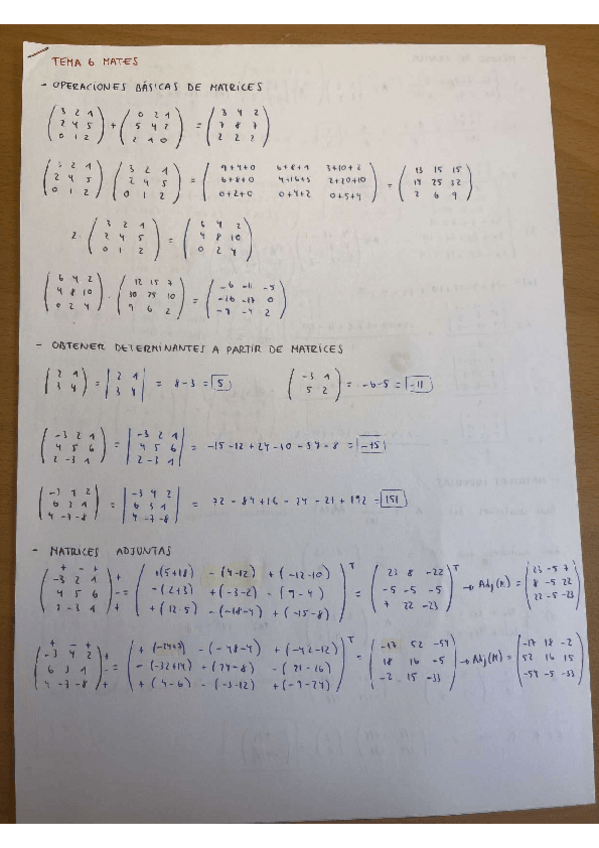 TEMA 6 MATES
- OPERACIONES BÁSICAS DE MATRICES
(3 2 1 / 2 4 5 / 0 1 2) + (0 2 1 / 5 4 2 / 2 1 0) = (3 4 2 / 7 8 7 / 2 2 2)
(3 2 1 / 2 4 5 / 0 1 2) (3 2 1 / 2 4 5 / 0 1 2) = (9+4+0 6+8+1 3+10+2 / 6+8+0 4+16+5 2+20+10 / 0+2+0 0+4+2 0+5+4) = (13 15 15 / 14 25 32 / 2 6 9)
2 · (3 2 1 / 2 4 5 / 0 1 2) = (6 4 2 / 4 8 10 / 0 2 4)
(6 4 2 / 4 8 10 / 0 2 4) - (12 15 7 / 10 / 9 6 2) = (-6 -11 -5 / -17 0 / 2)
- OBTENER DETERMINANTES A PARTIR DE MATRICES
(2 1 / 3 4) = |2 1 / 3 4| = 8-3 = 5 (-3 1 / 5 2) = -6-5 = -11
(-3 2 1 / 4 5 6 / 2 -3 1) = |-3 2 1 / 4 5 6 / 2 -3 1| = -15-12+24-10-54-8
(-3 4 2 / 6 3 1 / 4 -7 -8) = |-3 4 2 / 6 3 1 / 4 -7 -8| = 72-84+16-24-21+192 = 151
- MATRICES ADJUNTAS
(-3 2 1 / 4 5 6 / 2 -3 1) = (+(5+18) -(4-12) +(-12-10) / -(2+3) +(-3-2) -(9-4) / +(12-5) -(-18-4) +(-15-8))ᵀ = (23 8 -22 / -5 -5 -5 / 7 22 -23)ᵀ → Adj(M) = (23 -5 7 / 8 -5 22 / 22 -5 -23)
(-3 4 2 / 6 3 1 / 4 -7 -8) = (+(-24+7) -(-48-4) +(-42-12) / -(-32+14) +(24-8) -(21-16) / +(4-6) -(-3-12) +(-9-24))ᵀ = (-17 52 -54 / 18 16 -5 / -2 15 -33)ᵀ → Adj(M) = (-17 18 -2 / 52 16 15 / -54 -5 -33)